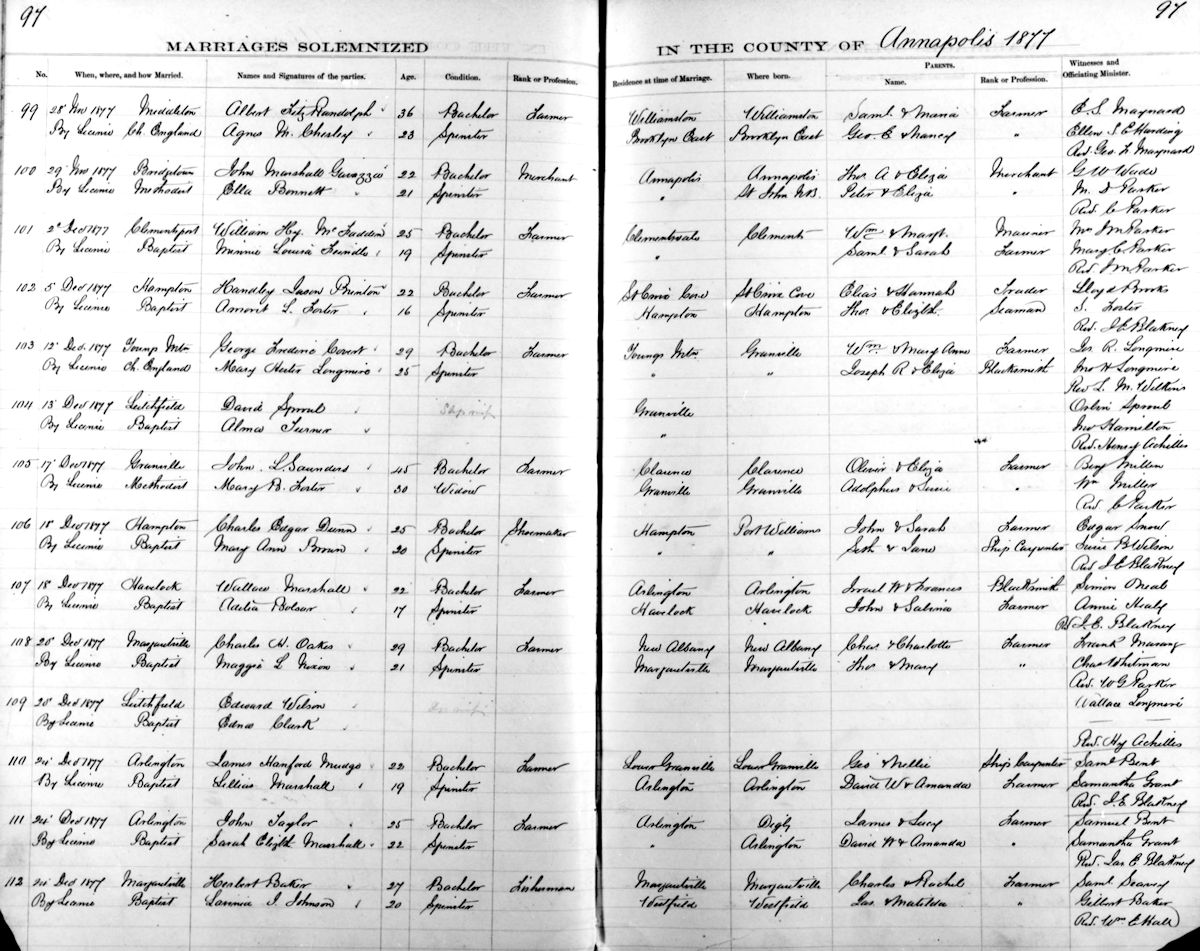 97
97
MARRIAGES SOLEMNIZED IN THE COUNTY OF Annapolis 1877
No. When, where, and how Married. Names and Signatures of the parties. Age. Condition. Rank or Profession. Residence at time of Marriage. Where born. PARENTS. Name. Rank or Profession. Witnesses and Officiating Minister.
99 28 Nov 1877 Middleton Albert Fitz Randolph 36 Bachelor Farmer Williamston Williamston Saml. & Maria Farmer E. S. Maynard
By Licence Ch. England Agnes M. Chesley 23 Spinster Brooklyn East Brooklyn East Geo. E & Nancy " Ellen S. E Harding
Rev. Geo. F. Maynard
100 29 Nov 1877 Bridgetown John Marshall 22 Bachelor Merchant Annapolis Annapolis Thos A & Eliza Merchant G W Wade
By Licence Methodist Ella Bonnett 21 Spinster " St John N.B. Peter & Eliza M. D Parker
Rev. C Parker
101 2 Dec 1877 Clementsport William Hy. McFadden 25 Bachelor Farmer Clementsvale Clements Wm & Margt. Mariner Mrs J M Parker
By Licence Baptist Minnie Louisa 19 Spinster " Saml & Sarah Farmer Mary C. Parker
Rev. J M Parker
102 5 Dec 1877 Hampton Handley Jason Brinton 22 Bachelor Farmer St Croix Cove St Croix Cove Elias & Hannah Trader Lloyd Brooks
By Licence Baptist L. Foster 16 Spinster Hampton Hampton Thos & Elizth. Seaman S. Foster
Rev. I. E Blakney
103 12 Dec. 1877 Youngs Mtn George Frederic Covert 29 Bachelor Farmer Youngs Mtn. Granville Wm. & Mary Anne Farmer Jos. R. Longmire
By Licence Ch. England Mary Hester Longmire 25 Spinster " " Joseph R & Eliza Blacksmith Jno H Longmire
Rev L. M. Wilkins
104 13 Dec 1877 Leitchfield David Sproul Granville Orbin Sproul
By Licence Baptist Alma Turner " Jno Hamilton
Rev. Henry Achilles
105 17 Dec 1877 Granville John L. Saunders 45 Bachelor Farmer Clarence Clarence Oliver & Eliza Farmer Benj Miller
By Licence Methodist Mary B. Foster 30 Widow Granville Granville Adolphus & Susie " Wm Miller
Rev. C Parker
106 18 Dec 1877 Hampton Charles Edgar Dunn 25 Bachelor Shoemaker Hampton Port Williams John & Sarah Farmer Edgar Snow
By Licence Baptist Mary Ann 20 Spinster " " Seth & Jane Ship Carpenter Susie B Wilson
Rev I. E Blakney
107 18 Dec 1877 Havelock Wallace Marshall 22 Bachelor Farmer Arlington Arlington Israel W & Frances Blacksmith Simon Neal
By Licence Baptist Adelia Bolsor 17 Spinster Havelock Havelock John & Sabina Farmer Annie Healy
Rev I. E. Blakney
108 25 Dec 1877 Margaretville Charles H. Oakes 29 Bachelor Farmer New Albany New Albany Chas. & Charlotte Farmer Frank
By Licence Baptist Maggie L Nixon 21 Spinster Margaretville Margaretville Thos & Mary " Chas Whitman
Rev. W G Parker
109 25 Dec 1877 Leitchfield Edward Wilson Wallace Longmire
By Licence Baptist Edna Clark
Rev. Hy Achilles
110 24 Dec 1877 Arlington James Hanford Mudge 22 Bachelor Farmer Lower Granville Lower Granville Geo & Nellie Ship Carpenter Saml Bent
By Licence Baptist Lillias Marshall 19 Spinster Arlington Arlington David W & Amanda Farmer Samantha Grant
Rev. I. E Blakney
111 24 Dec 1877 Arlington John Taylor 25 Bachelor Farmer Arlington Digby James & Lucy Farmer Samuel Bent
By Licence Baptist Sarah Elizth Marshall 22 Spinster " Arlington David W & Amanda " Samantha Grant
Rev. Jas E Blakney
112 24 Dec 1877 Margaretville Herbert Baker 27 Bachelor Fisherman Margaretville Margaretville Charles & Rachel Farmer Saml.
By Licence Baptist I. Johnson 20 Spinster Westfield Westfield Jas. & Matilda " Gilbert Baker
Rev. Wm E Hall